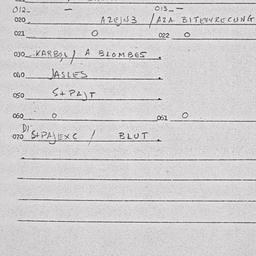 012 - 013 -
020 AZEJN3 / AZA
021 0 022 0
030 KARBOL / A BLOMBES
040 JASLES
050 S+PAJT
060 0 061 0
070 S+PAJEXC / BLUT